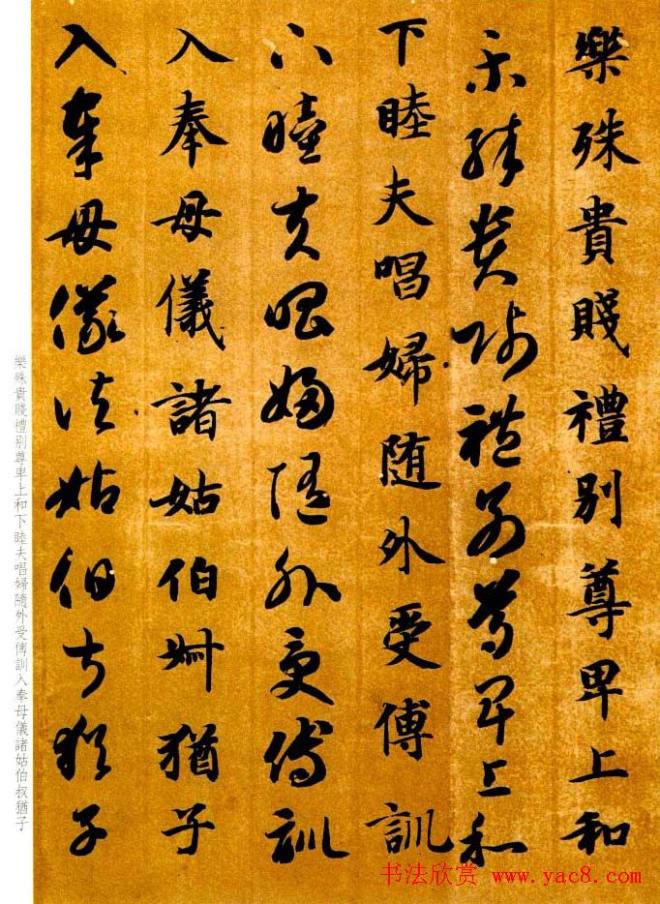 樂殊貴賤禮別尊卑上和
樂殊貴賤禮別尊卑上和
下睦夫唱婦随外受傅訓
下睦夫唱婦随外受傅訓
入奉母儀諸姑伯叔猶子
入奉母儀諸姑伯叔猶子
樂殊貴賤禮別尊卑上和下睦夫唱婦隨外受傅訓入奉母儀諸姑伯叔猶子
书法欣赏 www.yac8.com